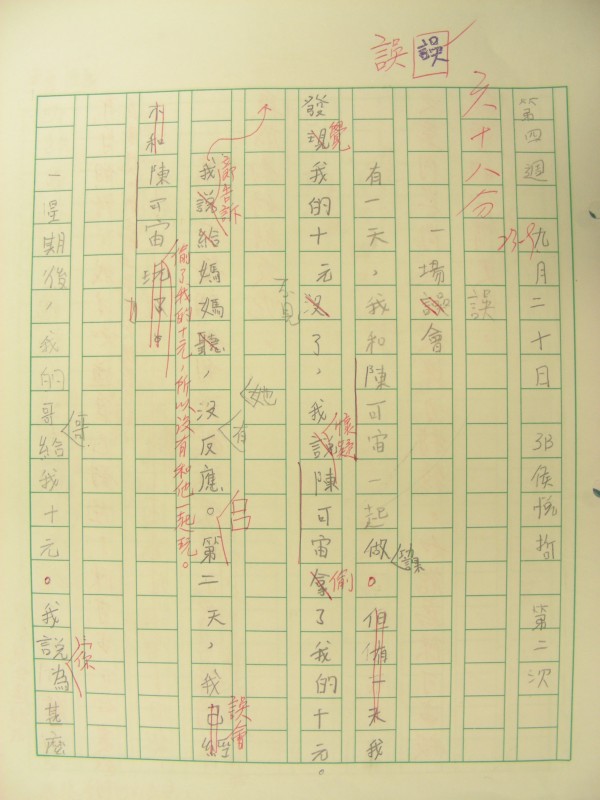 誤 誤
第四週 九月二十日 3B 侯悅哲 第二次
23-9
六十八分
一場誤會
誤
有一天，我和陳可宙一起做。但有一天我
功課
發現我的十元沒了，我說陳可宙拿了我的十元。
覺 懷疑 偷
不見
我說給媽媽聽，她沒有反應。第二天，我已經
卻告訴 誤會
不和陳可宙玩了。
偷了我的十元，所以沒有和他一起玩。
一星期後，我的哥哥給我十元。我說為甚麼